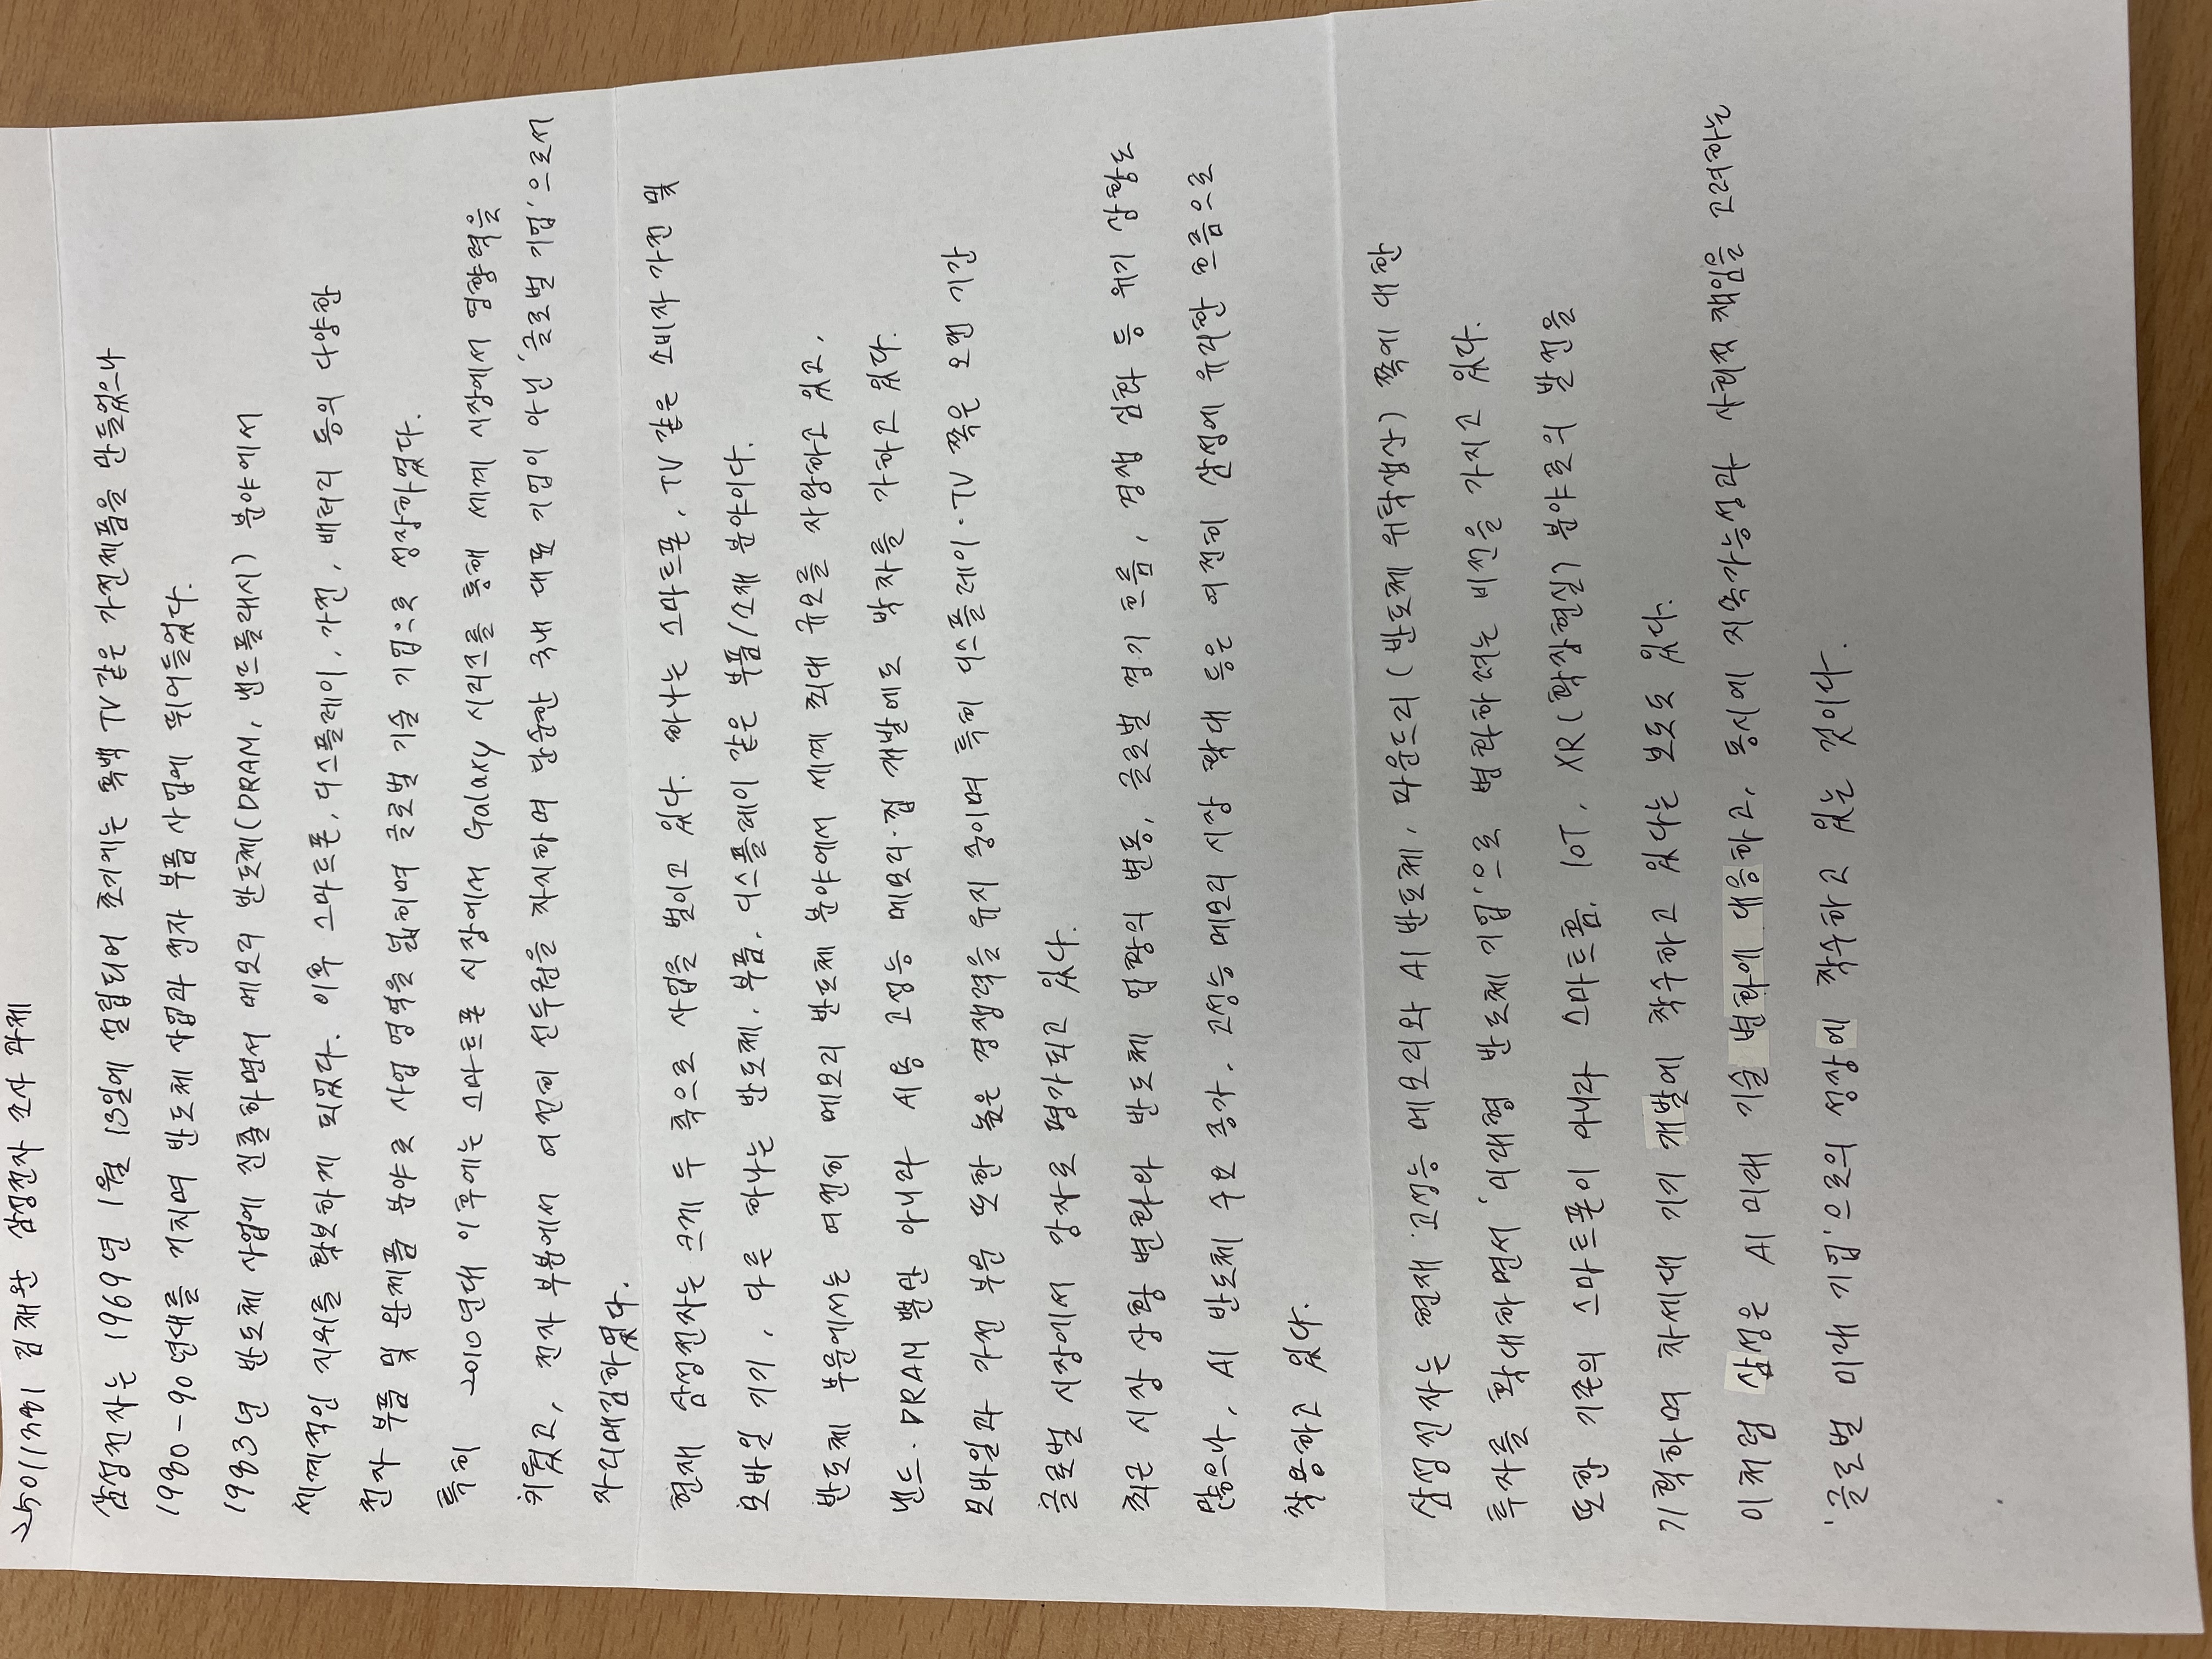 2501/자히 김재완 삼성전자 조사 과제
삼성전자는 1969년 1월 13일에 설립되어 초기에는 흑백 TV같은 가전제품을 만들었으나
1980-90년대를 거치며 반도체 사업과 전자 부품 사업에 뛰어들었다.
1983년 반도체 사업에 진출하면서 메모리 반도체(DRAM, 낸드플래시) 분야에서
세계적인 지위를 확보하게 되었다. 이후 스마트폰, 디스플레이, 가전, 배터리 등의 다양한
전자 부품 및 완제품 분야로 사업 영역을 넓히며 글로벌 기술 기업으로 성장하였다.
특히 2010년대 이후에는 스마트폰 시장에서 Galaxy 시리즈를 통해 세계 시장에서 영향력을
키웠고, 전자 부품에서 여전히 선두권을 차지하며 단순한 국내 대표 기업이 아닌 '글로벌 기업'으로서
자리매김하였다.
현재 삼성전자는 크게 두 축으로 사업을 벌이고 있다. 하나는 스마트폰, TV 같은 소비자 가전 및
모바일 기기, 다른 하나는 반도체·부품·디스플레이 같은 부품/소재 분야이다.
반도체 부문에서는 여전히 메모리 반도체 분야에서 세계 최대 규모를 자랑하고 있고,
낸드·DRAM 뿐만 아니라 AI용 고성능 메모리·칩 개발에도 박차를 가하고 있다.
모바일과 가전 부문 또한 높은 경쟁력을 유지 중이며 특히 디스플레이·TV 쪽은 오랜 기간
글로벌 시장에서 강자로 평가되고 있다.
최근 시장 상황 변화와 반도체 업황의 변동, 글로벌 경기 흐름, 경쟁 심화 등 위기 상황도
많으나, AI 반도체 수요 증가, 고성능 메모리 시장 확대 등은 여전히 삼성에 유리한 흐름으로
작용하고 있다.
삼성전자는 현재 고성능 메모리와 AI 반도체, 파운드리 (반도체 위탁생산) 쪽에 대한
투자를 확대하면서 '미래형 반도체 기업'으로 변화하려는 비전을 가지고 있다.
또한 기존의 스마트폰이 아니라 스마트홈, IOT, XR(확장현실) 분야로의 발전을
기획하며 차세대 기기 개발에 착수하고 있다는 보도도 있다.
이처럼 삼성은 AI 미래 기술 변화에 대응하고, 동시에 지속가능성과 사회적 책임을 고려하는
'글로벌 미래 기업'으로의 성장에 착수하고 있는 것이다.